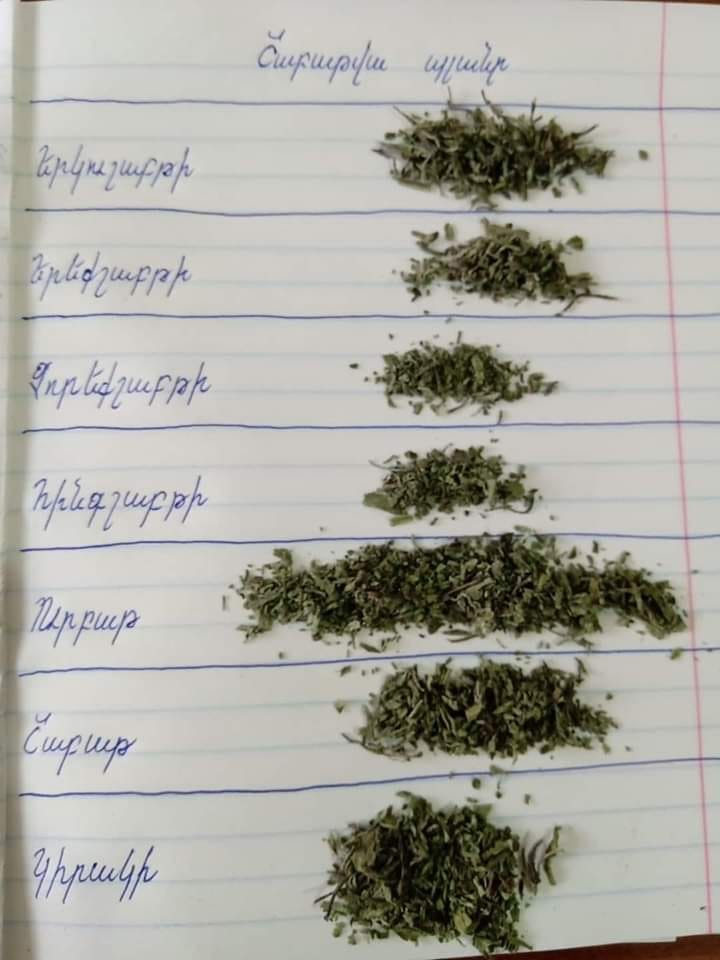 Շաբաթվա պլանը
Երկուշաբթի
Երեքշաբթի
Չորեքշաբթի
Հինգշաբթի
Ուրբաթ
Շաբաթ
Կիրակի